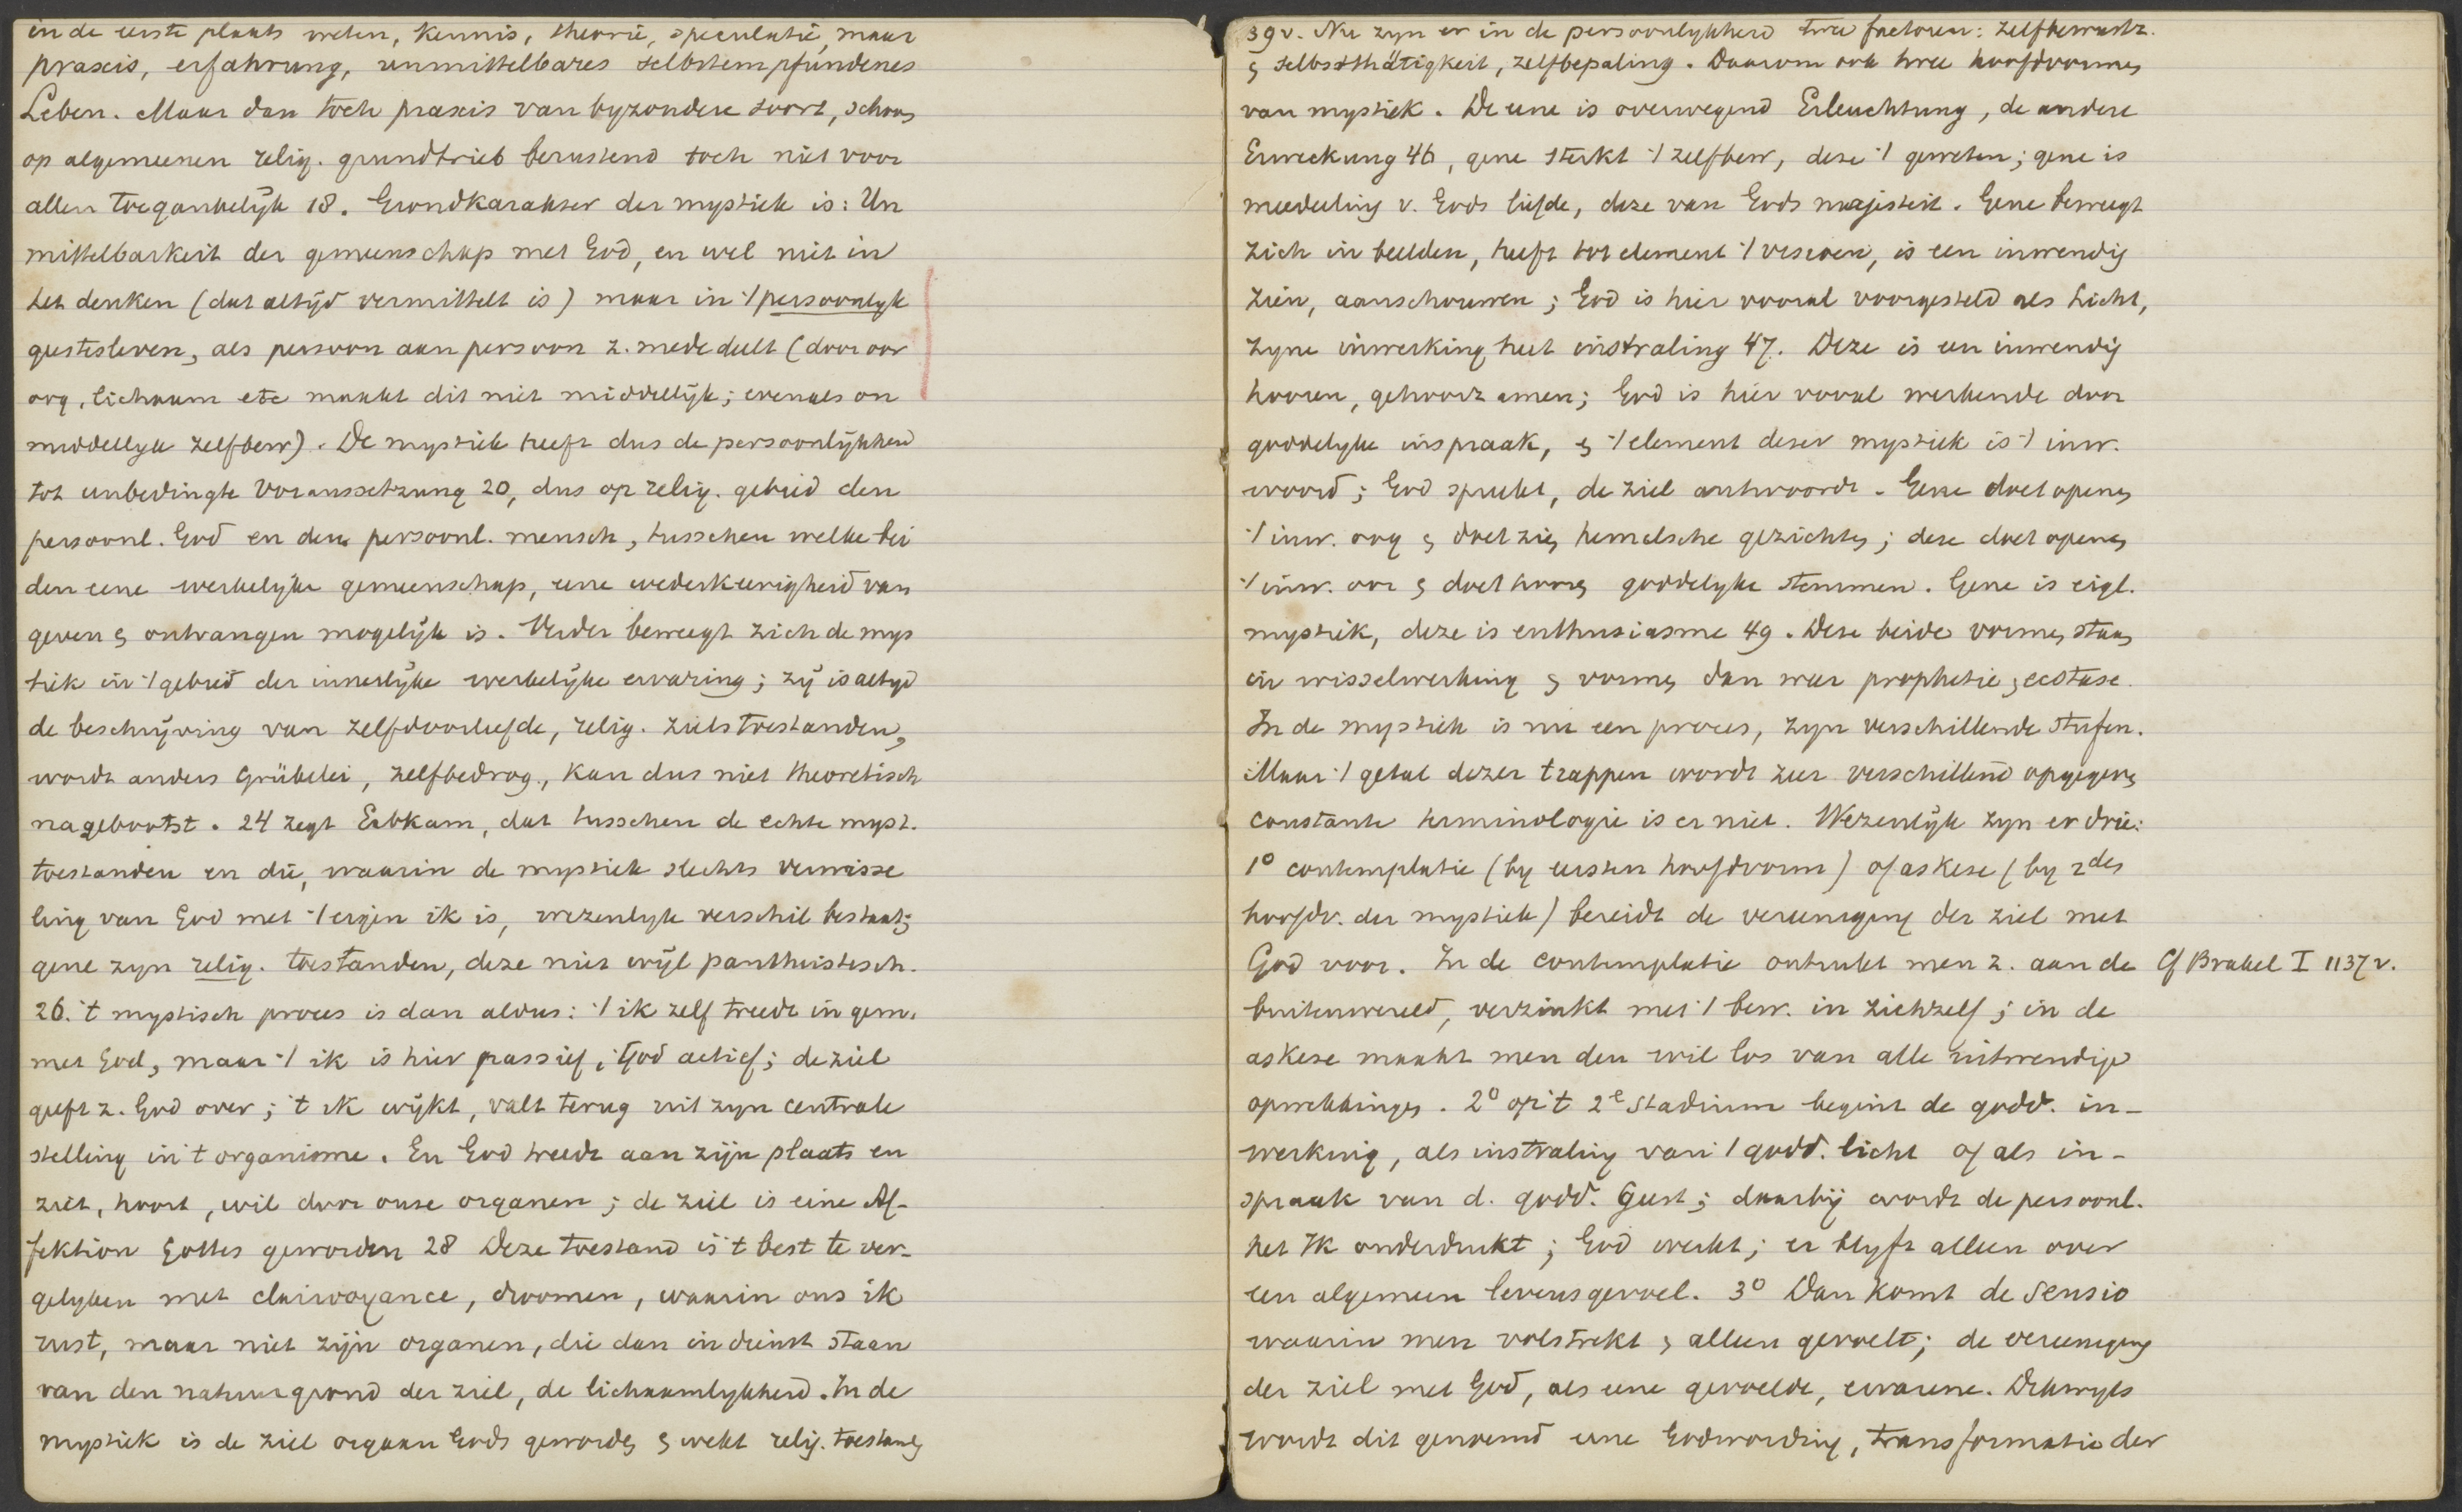 in de eerste plaats weten, kennis, theorie, speculatie, maar
praxis, erfahrung, unmittelbares selbstempfundenes
Leben. Maar dan toch praxis van byzondere soort, schoon
op algemeenen relig. grundtrieb berustend toch niet voor
allen toegankelijk 18. Grondkarakter der mystiek is: Un
mittelbarkeit der gemeenschap met God, en wel niet in
het denken (dat altijd vermittelt is) maar in 't persoonlyk
geestesleven, als persoon aan persoon z. mededeelt (door oor
oog, lichaam etc maakt dit niet middellijk; evenals on
middellyk zelfbew). De mystiek heeft dus de persoonlijkheid
tot unbedingte Voraussetzung 20, dus op relig. gebied den
persoonl. God en den persoonl. mensch, tusschen welke bei
den eene werkelijke gemeenschap, eene wederkeerigheid van
geven & ontvangen mogelijk is. Verder beweegt zich de mys
tiek in 't gebied der innerlijke werkelijke ervaring; zij is altyd
de beschrijving van zelfdoorleefde, relig. zielstoestanden,
wordt anders Grübelei, zelfbedrog, kan dus niet theoretisch
nagebootst. 24 zegt Erbkam, dat tusschen de echte myst.
toestanden en die, waarin de mystiek slechts verwisse
ling van God met 't eigen ik is, wezenlyk verschil bestaat;
gene zyn relig. toestanden, deze niet wijl pantheistisch.
26. 't mystisch proces is dan aldus: 't ik zelf treedt in gem.
met God, maar 't ik is hier passief, God actief; de ziel
geeft z. God over; 't ik wijkt, valt terug uit zyn centrale
stelling in 't organisme. En God treedt aan zijn plaats en
ziet, hoort, wil door onze organen; de ziel is eine Af-
fektion Gottes geworden 28 Deze toestand is 't best te ver-
gelyken met clairvoyance, droomen, waarin ons ik
rust, maar niet zijn organen, die dan in dienst staan
van den natuurgrond der ziel, de lichaamlykheid. In de
mystiek is de ziel orgaan Gods geworden & wekt relig. toestand
39v. Nu zyn er in de persoonlykheid twee factoren: zelfbewustz.
& selbstthätigkeit, zelfbepaling. Daarom ook twee hoofdvormen
van mystiek. De eene is overwegend Erleuchtung, de andere
Erweckung 46, gene sterkt 't zelfbew, deze 't geweten; gene is
mededeeling v. Gods liefde, deze van Gods majesteit. Gene beweegt
zich in beelden, heeft tot element 't visioen, is een inwendig
zien, aanschouwen; God is hier vooral voorgesteld als Licht,
zyne inwerking heet instraling 47. Deze is een inwendig
hooren, gehoorzamen; God is hier vooral werkende door
goddelyke inspraak, & 't element dezer mystiek is 't inw.
woord; God spreekt, de ziel antwoordt. Gene doet openen
't inw. oog & doet zien hemelsche gezichten; deze doet openen
't inw. oor & doet hooren goddelyke stemmen. Gene is eigl.
mystiek, deze is enthusiasme 49. Deze beide vormen staan
in wisselwerking & vormen dan weer prophetie & ecstase.
In de mystiek is nu een proces, zyn verschillende stufen.
Maar 't getal dezer trappen wordt zeer verschillend opgegeven
constante terminologie is er niet. Wezenlijk zyn er drie:
1º contemplatie (by eersten hoofdvorm) of askese (by 2den
hoofdv. der mystiek) bereidt de vereeniging der ziel met
God voor. In de contemplatie ontrukt men z. aan de
Cf Brakel I 1137v.
buitenwereld, verzinkt met 't bew. in zichzelf; in de
askese maakt men den wil los van alle uitwendige
opwekkingen. 2º op 't 2e stadium begint de godd. in-
werking, als instraling van 't godd. licht of als in-
spraak van d. godd. Geest; daarbij wordt de persoonl.
het Ik onderdrukt; God werkt; er blyft alleen over
een algemeen levensgevoel. 3º Dan komt de Sensio
waarin men volstrekt & alleen gevoelt; de vereeniging
der ziel met God, als eene gevoelde, ervarene. Dikwyls
wordt dit genoemd eene Godwording, transformatie der